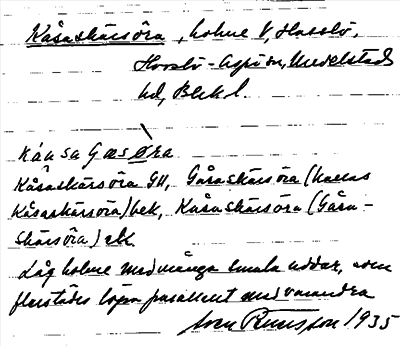 Kåsaskärsöra, holme V, Hasslö,
Hasslö-Aspö sn, Medelstads
hd, Blek l.
Kåsaskärsöra GH, Gåsaskärsöra (kallas
Kåsaskärsöra) bek, Kåsaskärsöra (Gåsa-
skärsöra) ek
Låg holme med många smala uddar, som
flerstädes löpa parallellt med varandra
Sven Runsson 1935